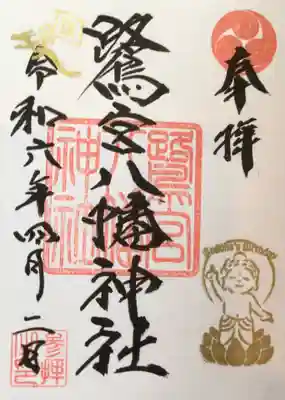 奉拝
鷺宮八幡神社
令和六年四月二日
鷺宮八幡神社
Buddha's Birthday
参拝